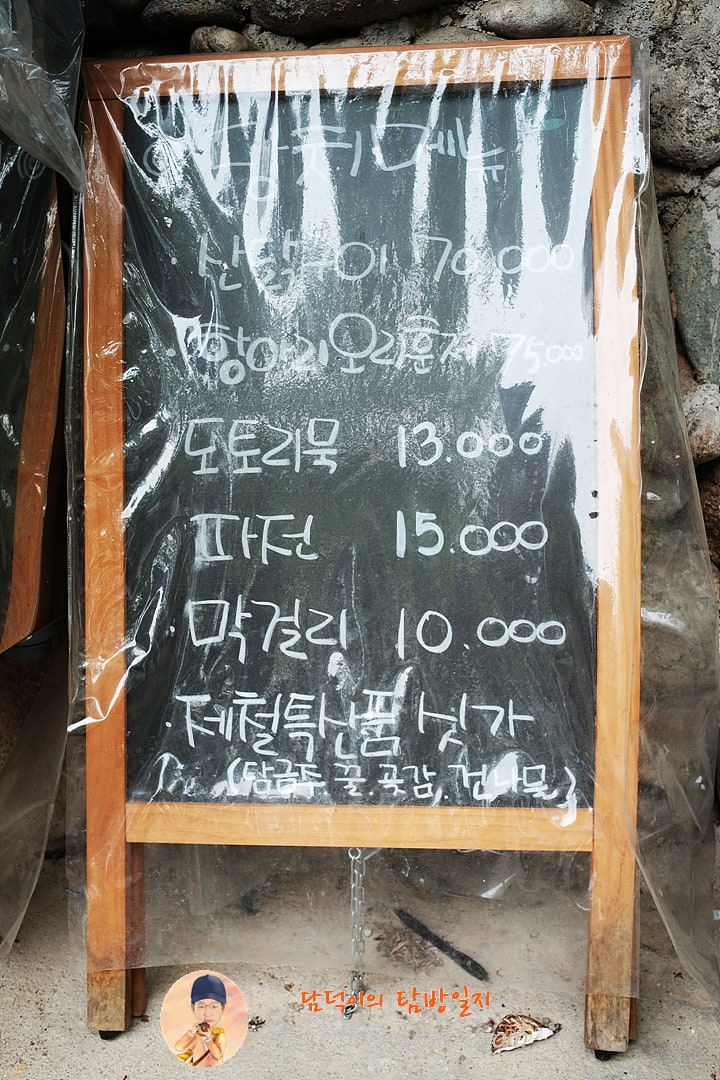 메뉴
산닭구이 70.000
· 항아리오리훈제 75.000
도토리묵 13.000
파전 15.000
· 막걸리 10.000
· 제철특산품 싯가
(담금주.꿀.곶감.건나물)
담덕이의 탐방일지